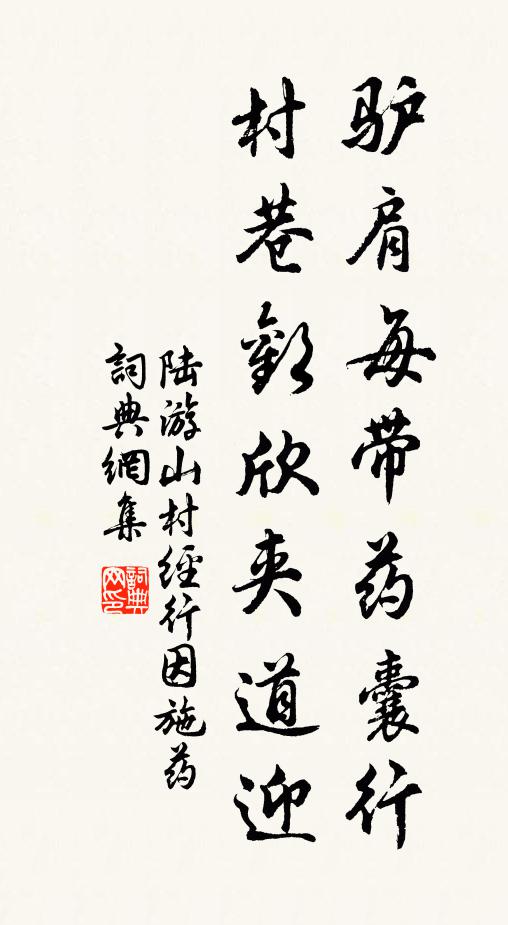 驴肩每带药囊行
村巷歡欣夹道迎
陆游山村經行因施药
詞典網集
詞典网印